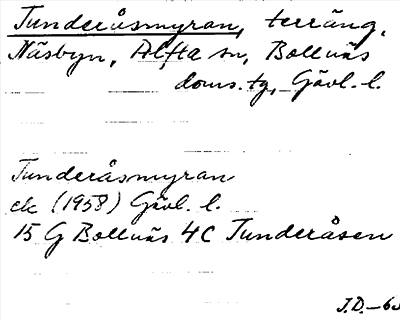 Tunderåsmyran, terräng,
Näsbyn, Alfta sn, Bollnäs
doms. tg, Gävl. l.
Tunderåsmyran
ek (1958) Gävl. l.
15 G Bollnäs 4C Tunderåsen
J.D.–6